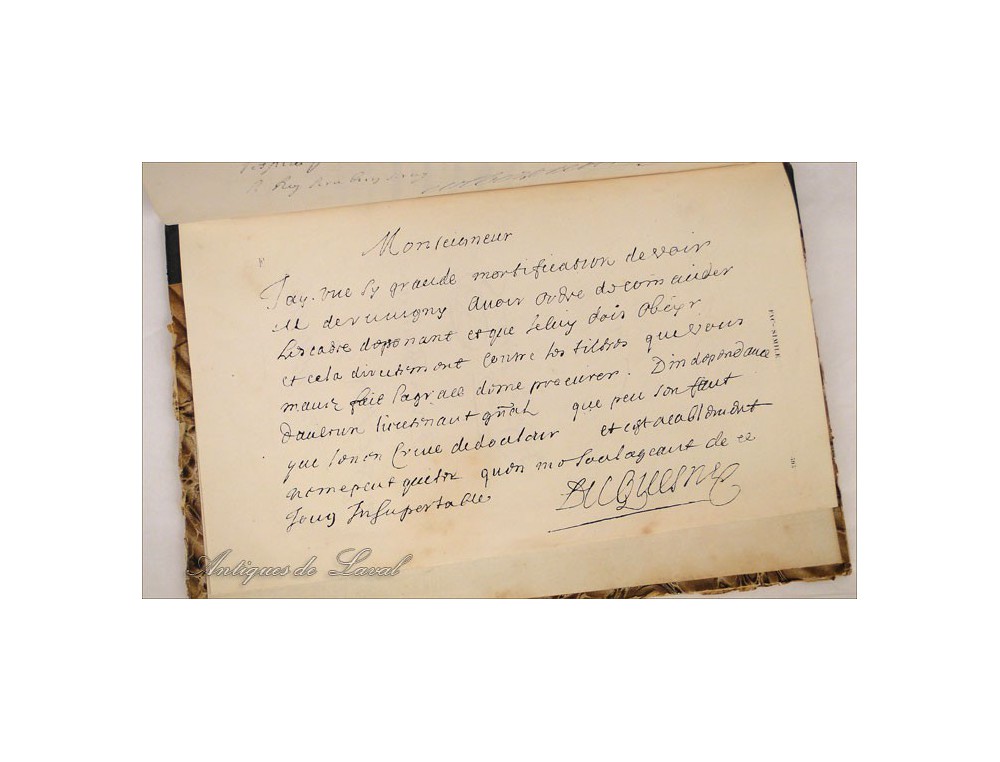 Monseigneur
Jay vue sy grande mortification de voir
M de ruvigny avoir ordre de comander
Lescadre deponant et que je luy dois obeyr
et cela directement contre les tiltres que vous
mavez faict lagrace deme procurer. Dindependance
daucun lieutenant gñal que peu sen faut
que jenen creve dedouleur et cet acablement
neme peut quiter quen me soulageant de ce
joug Insuportable
DuQuesne
FAC-SIMILE
Antiques de Laval